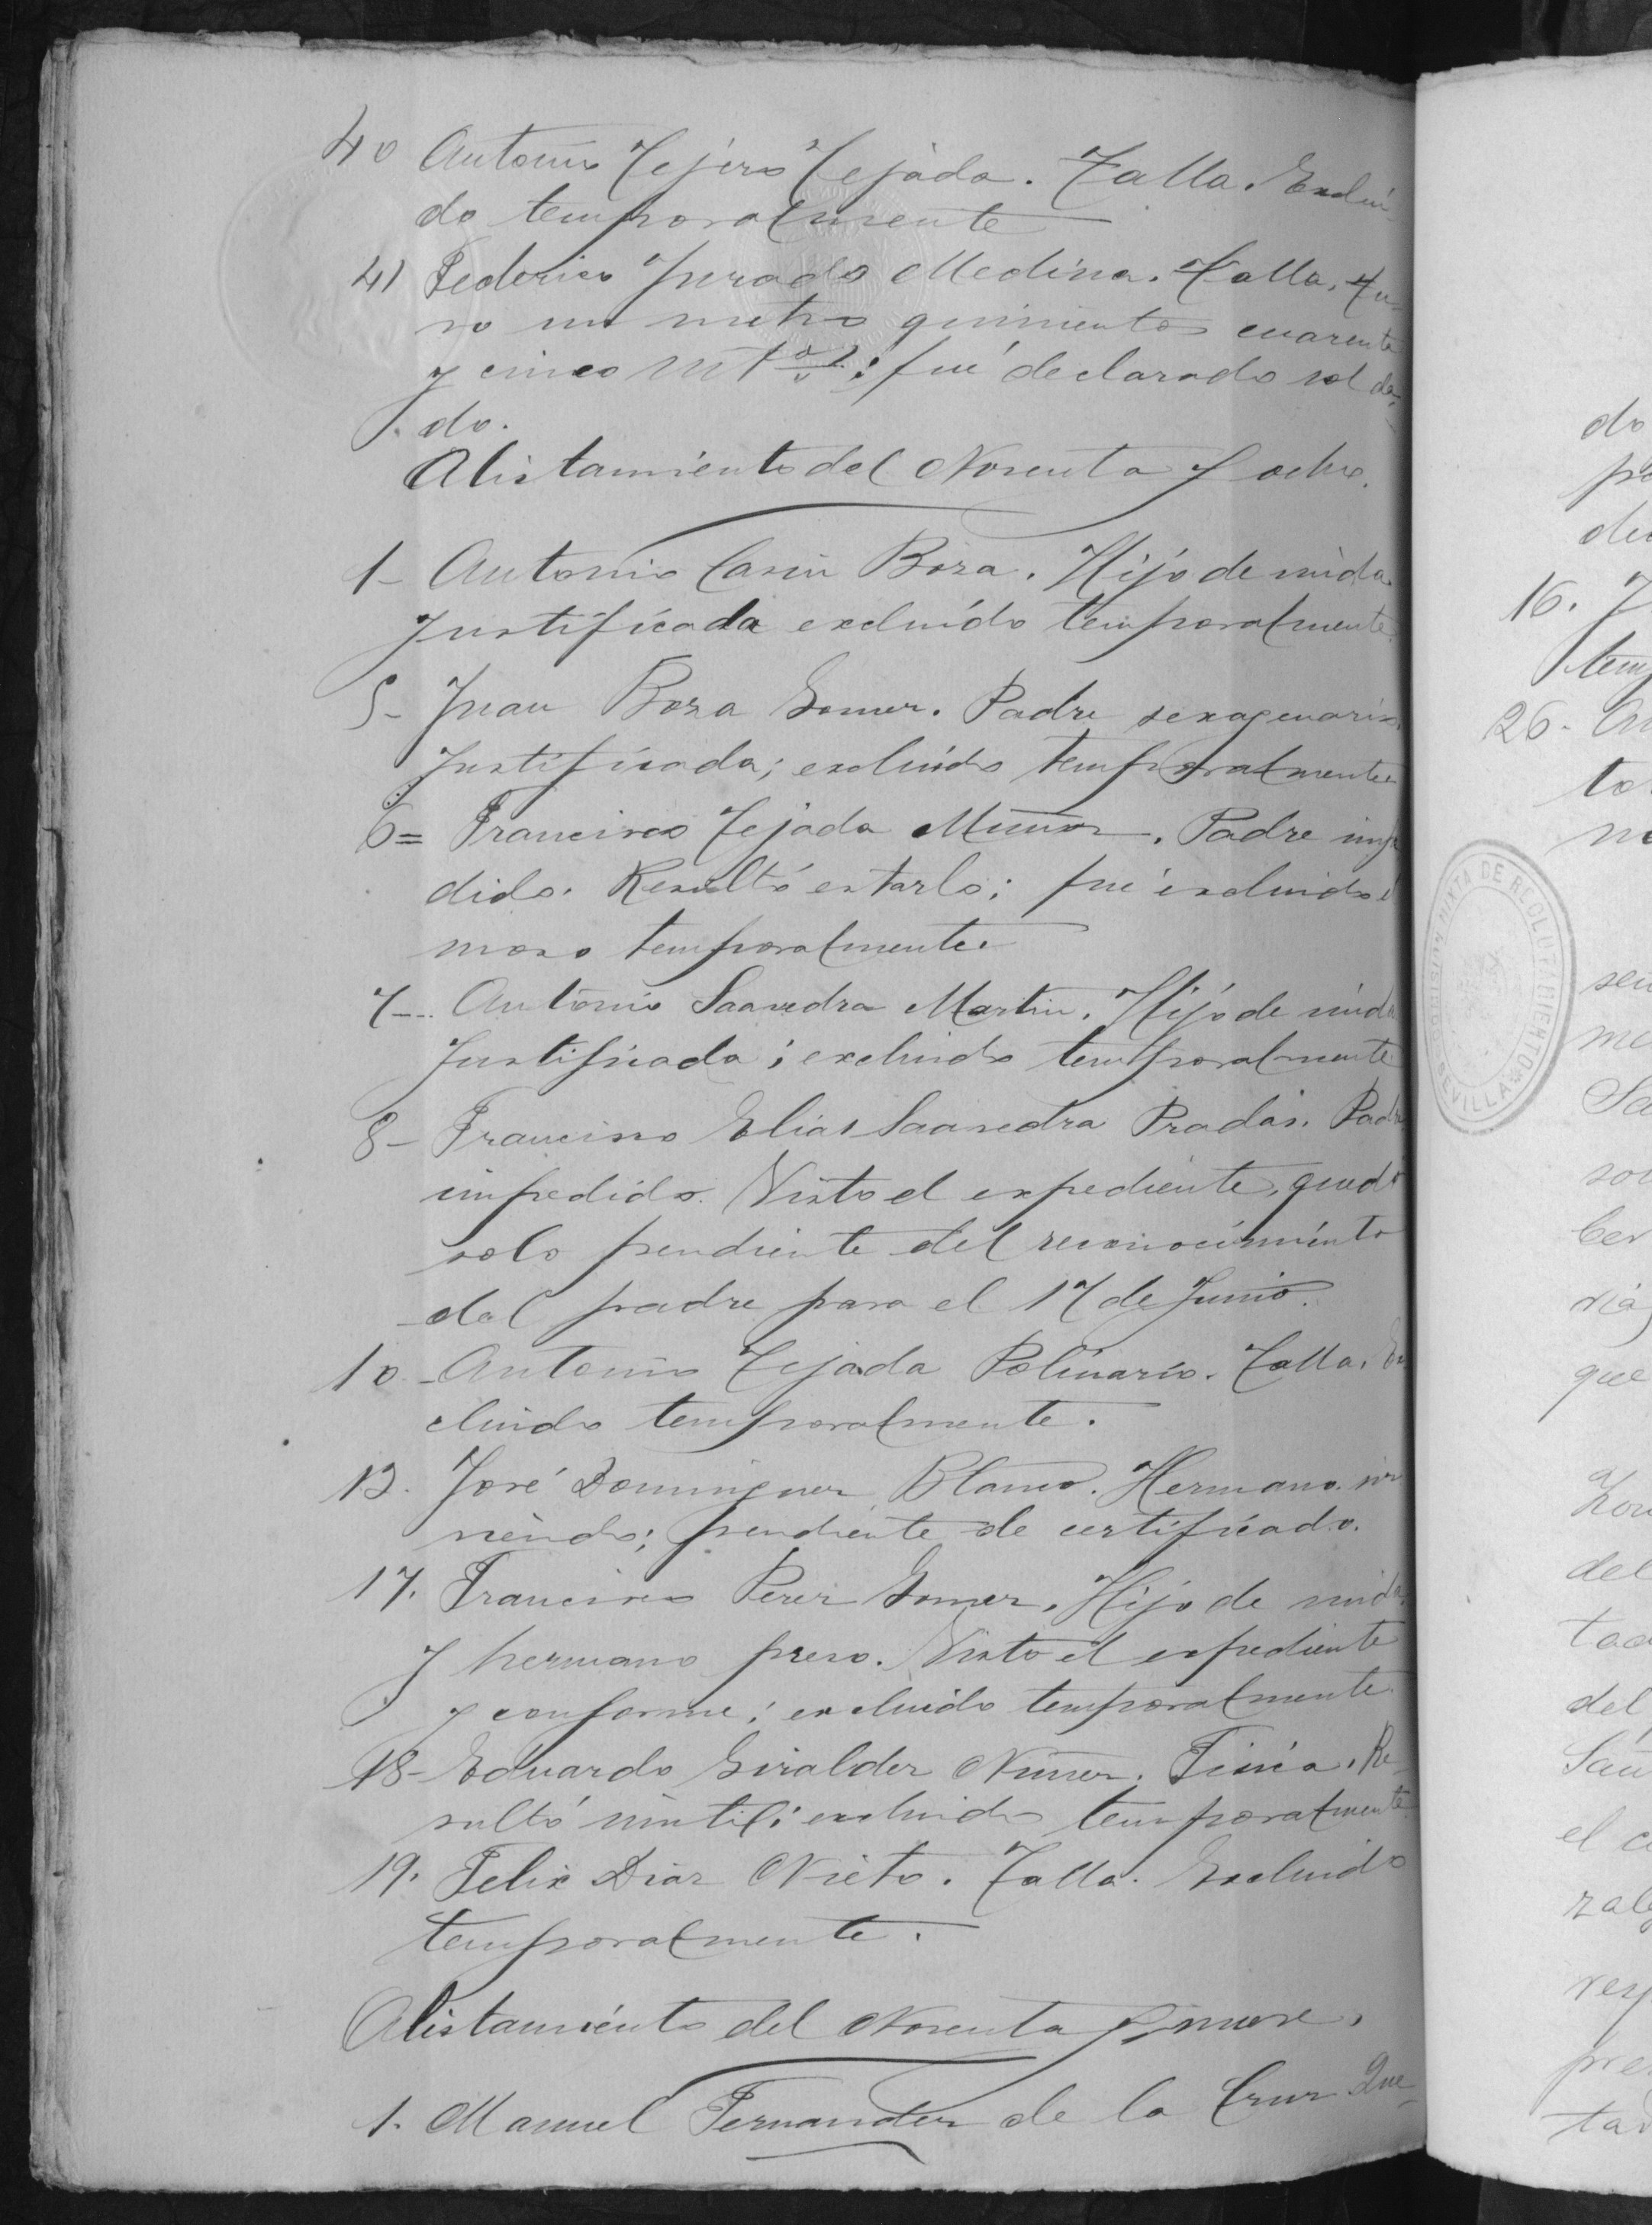 40 Antonio Tejero Tejada. Talla. Exclui-
do temporalmente
41 Federico Jurado Medina. Talla. Tu-
vo un metro quinientos cuarenta
y cinco mt.os; fué declarado solda-
do.
Alistamiento del Noventa y ocho.
1- Antonio Casin Boza. Hijo de viuda
Justificada excluido temporalmente.
5- Juan Boza Gomez. Padre sexagenario.
Justificada; excluido temporalmente
6= Francisco Tejada Muñoz. Padre impe
dido. Resultó estarlo; fué excluido el
mozo temporalmente.
7- Antonio Saavedra Martin. Hijo de viuda
Justificada; excluido temporalmente
8- Francisco Elias Saavedra Pradas. Padre
impedido. Visto el expediente, quedó
solo pendiente del reconocimiento
del padre para el 17 de Junio.
10 - Antonio Tejada Polinario. Talla. Ex
cluido temporalmente.
13. José Dominguez Blanco. Hermano sir
viendo; pendiente de certificado.
17. Francisco Perez Gomez. Hijo de viuda
y hermano preso. Visto el expediente
y conforme; excluido temporalmente.
18- Eduardo Giraldez Nuñez. Física. Re-
sultó inutil; excluido temporalmente
19. Felix Diaz Nieto. Talla. Excluido
temporalmente.
Alistamiento del Noventa y nueve.
1. Manuel Fernandez de la Cruz Que-
do
16.
26-
to
COMISION MIXTA DE RECLUTAMIENTO
SEVILLA
que
del
del